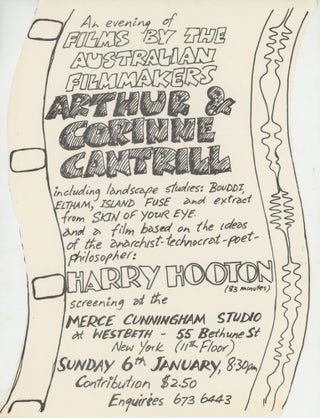 An evening of
FILMS BY THE
AUSTRALIAN
FILMMAKERS
ARTHUR &
CORINNE
CANTRILL
including landscape studies: BOUDDI,
ELTHAM, ISLAND FUSE and extract
from SKIN OF YOUR EYE
and a film based on the ideas
of the anarchist-technocrat-poet-
philosopher:
HARRY HOOTON
(83 minutes)
screening at the
MERCE CUNNINGHAM STUDIO
at WESTBETH - 55 Bethune St
New York (11th Floor)
SUNDAY 6th JANUARY, 8:30pm
Contribution $2.50
Enquiries 673 6443